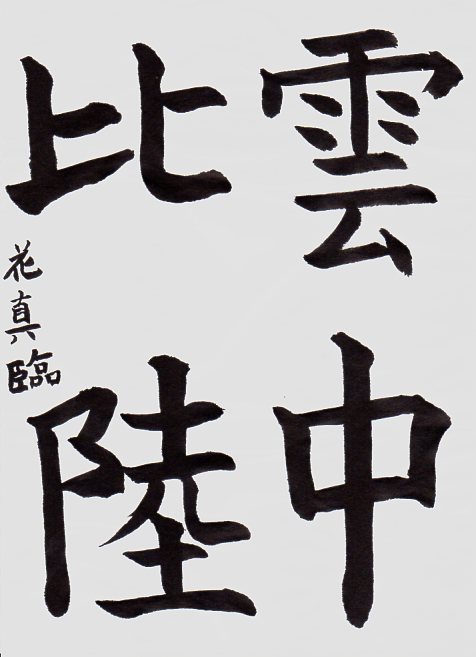 雲中
比陸
花真臨